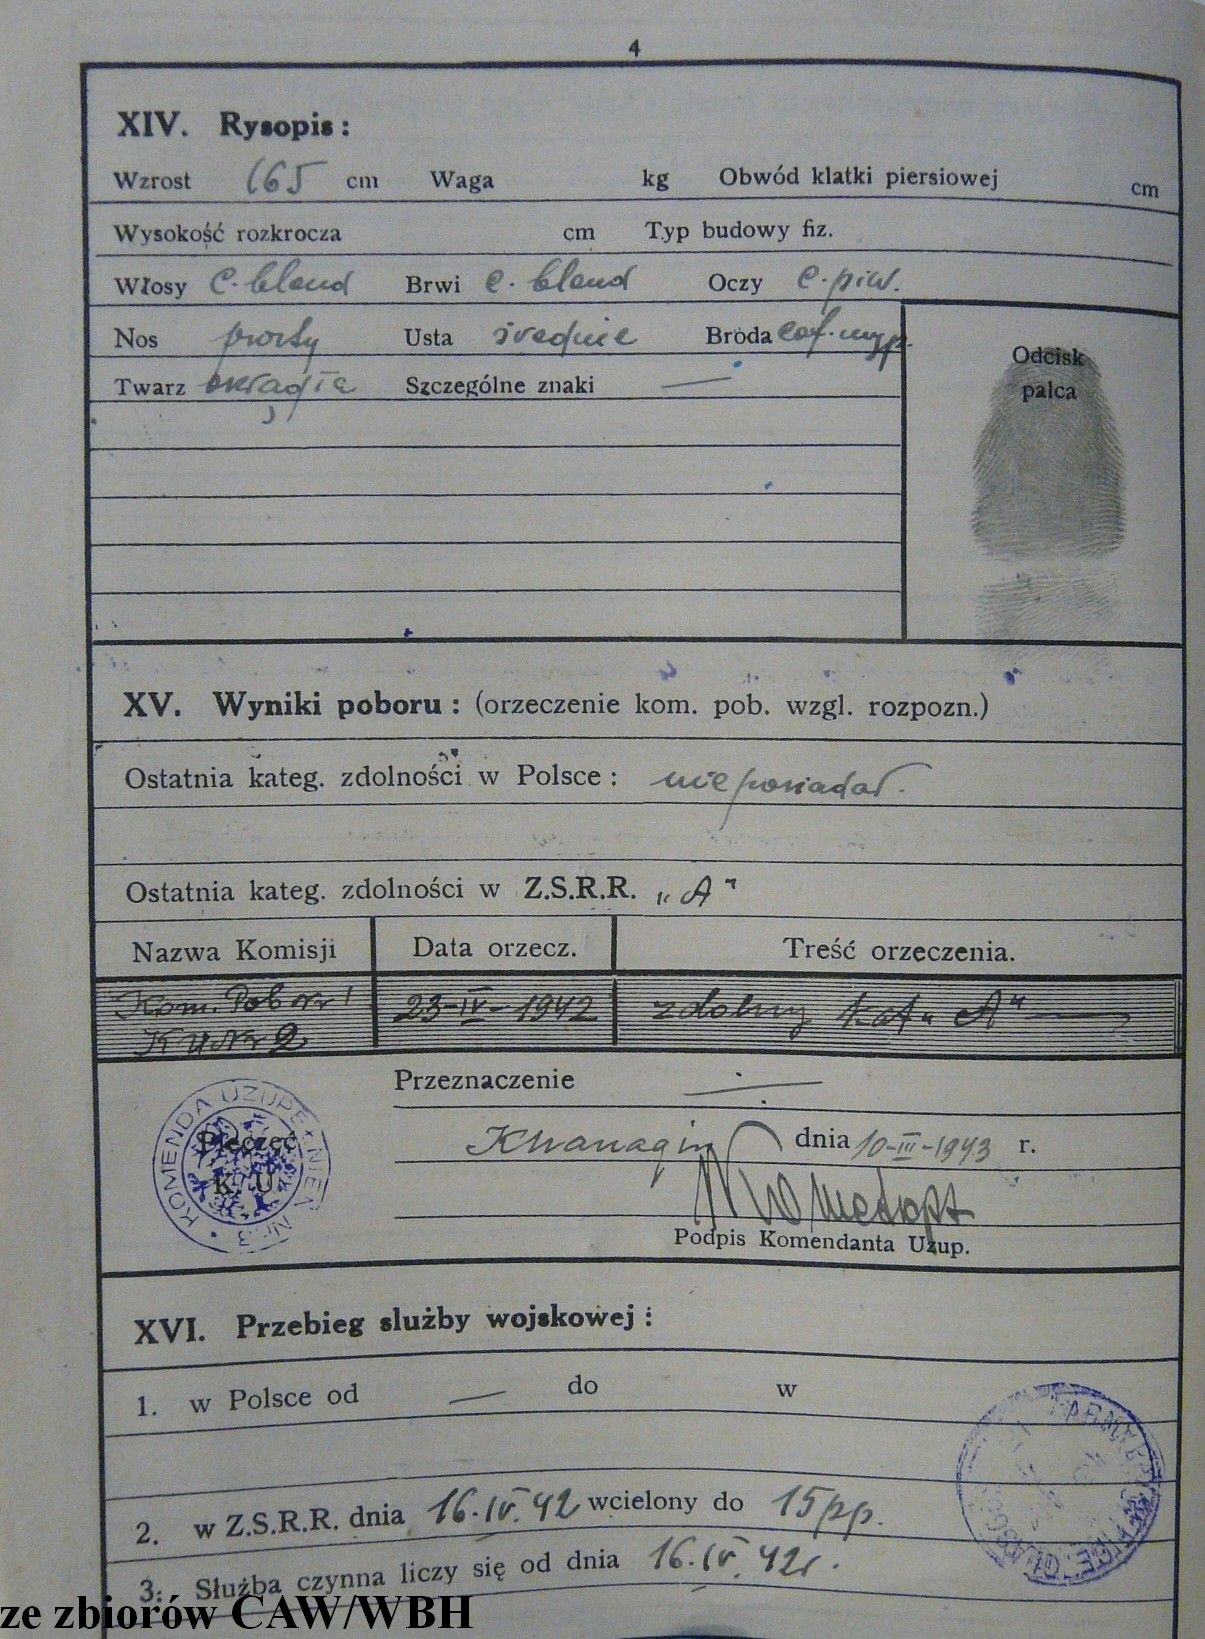 4
XIV. Rysopis :
Wzrost 165 cm Waga kg Obwód klatki piersiowej cm
Wysokość rozkrocza cm Typ budowy fiz.
Włosy c. blond Brwi c. blond Oczy c. piw.
Nos prosty Usta średnie Broda
Odcisk
palca
Twarz okrągła Szczególne znaki —
XV. Wyniki poboru : (orzeczenie kom. pob. wzgl. rozpozn.)
Ostatnia kateg. zdolności w Polsce : nie posiadał.
Ostatnia kateg. zdolności w Z.S.R.R. „A"
Nazwa Komisji Data orzecz. Treść orzeczenia.
Kom. Pobor 23-IV-1942 zdolny kat „A" —
KU Nr 2
Przeznaczenie —
KOMENDA UZUPEŁNIEŃ Nr. 3
Pieczęć
K. U.
Khanaqin dnia 10-III-1943 r.
Podpis Komendanta Uzup.
XVI. Przebieg służby wojskowej :
1. w Polsce od — do w
2. w Z.S.R.R. dnia 16.IV.42 wcielony do 15 pp.
3. Służba czynna liczy się od dnia 16.IV.42r.
ze zbiorów CAW/WBH